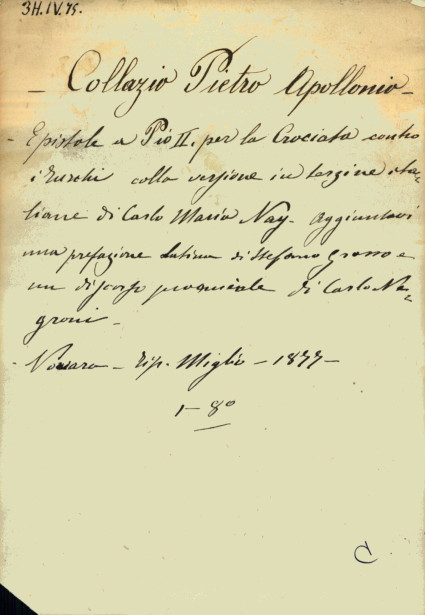 3H.IV.75.
- Collazio Pietro Apollonio -
- Epistole a Pio II. per la Crociata contro
i Turchi colla versione in terzine ita=
liane di Carlo Maria Nay - Aggiuntavi
una prefazione latina di Stefano Grosso e
un discorso proemiale di Carlo Ne=
groni -
- Novara - Tip. Miglio - 1877 -
1 - 8º
C